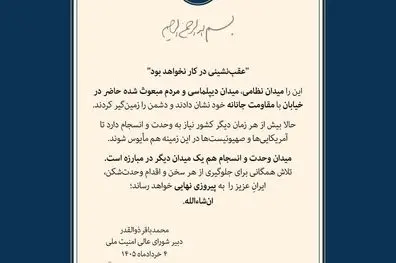 بسم الله الرحمن الرحیم
"عقب‌نشینی در کار نخواهد بود"
این را میدان نظامی، میدان دیپلماسی و مردم مبعوث شده حاضر در
خیابان با مقاومت جانانه خود نشان دادند و دشمن را زمین‌گیر کردند.
حالا بیش از هر زمان دیگر کشور نیاز به وحدت و انسجام دارد تا
آمریکایی‌ها و صهیونیست‌ها در این زمینه هم مأیوس شوند.
میدان وحدت و انسجام هم یک میدان دیگر در مبارزه است.
تلاش همگانی برای جلوگیری از هر سخن و اقدام وحدت‌شکن،
ایرانِ عزیز را به پیروزی نهایی خواهد رساند؛
ان‌شاءالله.
محمدباقر ذوالقدر
دبیر شورای عالی امنیت ملی
۴ خردادماه ۱۴۰۵